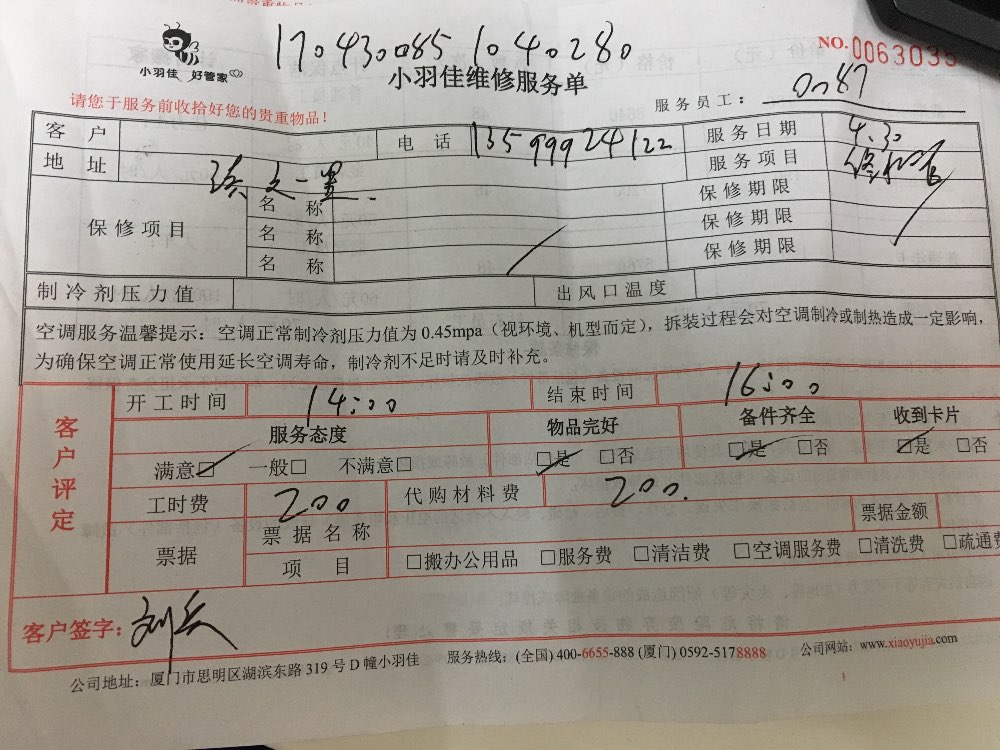 170430085 1040280
小羽佳 好管家
NO. 0063035
小羽佳维修服务单
请您于服务前收拾好您的贵重物品!
服务员工: 0087
客户 电话 13599924122 服务日期 4.30
地址 服务项目
保修项目 名称 保修期限
名称 保修期限
名称 保修期限
制冷剂压力值 出风口温度
空调服务温馨提示:空调正常制冷剂压力值为0.45mpa(视环境、机型而定),拆装过程会对空调制冷或制热造成一定影响,
为确保空调正常使用延长空调寿命,制冷剂不足时请及时补充。
客户评定
开工时间 14:00 结束时间 16:00
服务态度 物品完好 备件齐全 收到卡片
满意☑ 一般□ 不满意□ ☑是 □否 ☑是 □否 ☑是 □否
工时费 200 代购材料费 200.
票据 票据名称 票据金额
项目 □搬办公用品 □服务费 □清洁费 □空调服务费 □清洗费 □疏通费
客户签字:
公司地址:厦门市思明区湖滨东路319号D幢小羽佳 服务热线:(全国)400-6655-888 (厦门)0592-5178888 公司网站:www.xiaoyujia.com